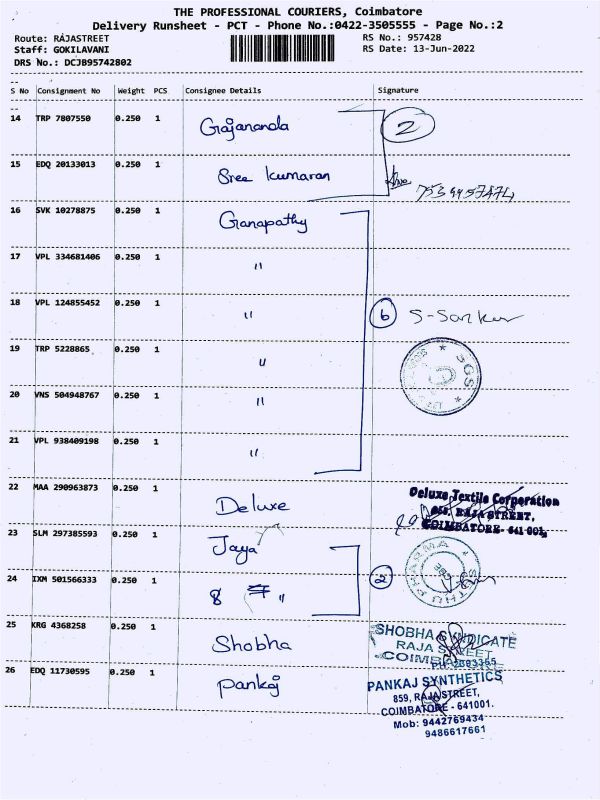 THE PROFESSIONAL COURIERS, Coimbatore
Delivery Runsheet - PCT - Phone No.:0422-3505555 - Page No.:2
Route: RAJASTREET RS No.: 957428
Staff: GOKILAVANI RS Date: 13-Jun-2022
DRS No.: DCJB95742802
S No Consignment No Weight PCS Consignee Details Signature
14 TRP 7807550 0.250 1 Gajananda 2
15 EDQ 20133013 0.250 1 Sree Kumaran
16 SVK 10278875 0.250 1 Ganapathy
17 VPL 334681406 0.250 1 "
18 VPL 124855452 0.250 1 " 6 S-Sankar
19 TRP 5228865 0.250 1 "
20 VNS 504948767 0.250 1 "
21 VPL 938409198 0.250 1 "
22 MAA 290963873 0.250 1 Deluxe
Deluxe Textile Corporation
RAJA STREET,
COIMBATORE- 641 001.
23 SLM 297385593 0.250 1 Jaya
24 IXM 501566333 0.250 1 8 " 2
PHARMA
25 KRG 4368258 0.250 1 Shobha
SHOBHA SYNDICATE
RAJA STREET
COIMBATORE
26 EDQ 11730595 0.250 1 Pankaj
PANKAJ SYNTHETICS
859, RAJA STREET,
COIMBATORE - 641001.
Mob: 9442769434
9486617661